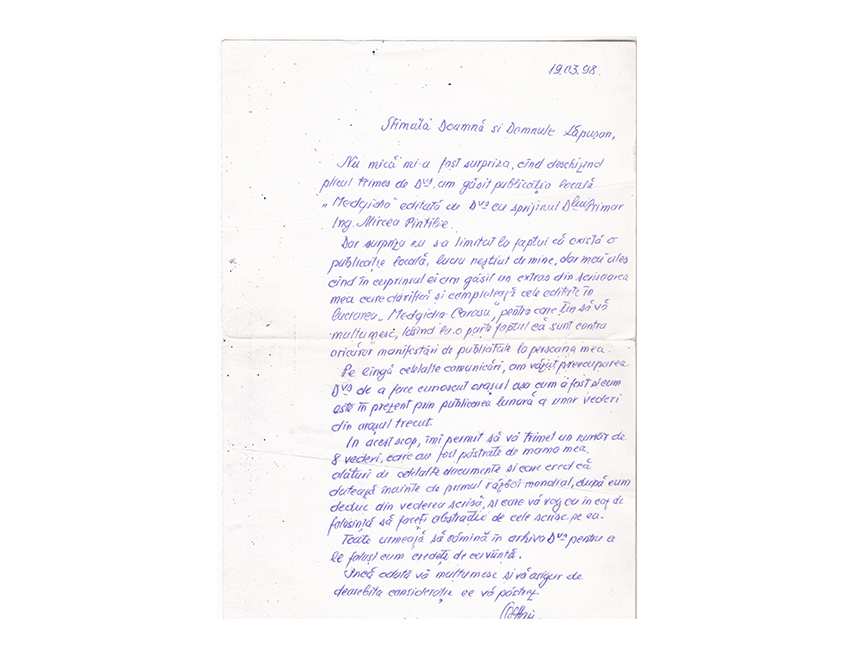 19.03.98.
Stimată Doamnă si Domnule Lăpușan,
Nu mică mi-a fost surpriza, cînd deschizînd
plicul trimes de Dvs, am găsit publicația locală
"Medgidia" editată de Dvs cu sprijinul Dlui Primar
Ing. Mircea Pintilie.
Dar surpriza nu s-a limitat la faptul că există o
publicație locală, lucru neștiut de mine, dar mai ales
cînd în cuprinsul ei am găsit un extras din scrisoarea
mea care clarifică și completează cele editate în
lucrarea "Medgidia-Carasu", pentru care țin să vă
mulțumesc, lăsînd la o parte faptul că sunt contra
oricăror manifestări de publicitate la persoana mea.
Pe lîngă celelalte comunicări, am văzut preocuparea
Dvs de a face cunoscut orașul asa cum a fost si cum
este în prezent prin publicarea lunară a unor vederi
din orașul trecut.
In acest scop, îmi permit să vă trimet un număr de
8 vederi, care au fost păstrate de mama mea,
alături de celelalte documente si care cred că
datează înainte de primul război mondial, după cum
deduc din vederea scrisă, și care vă rog ca în caz de
folosință să faceți abstracție de cele scrise pe ea.
Toate urmează să rămînă în arhiva Dvs pentru a
le folosi cum credeți de cuviință.
Incă odată vă multumesc si vă asigur de
deosebita considerație ce vă păstrez.